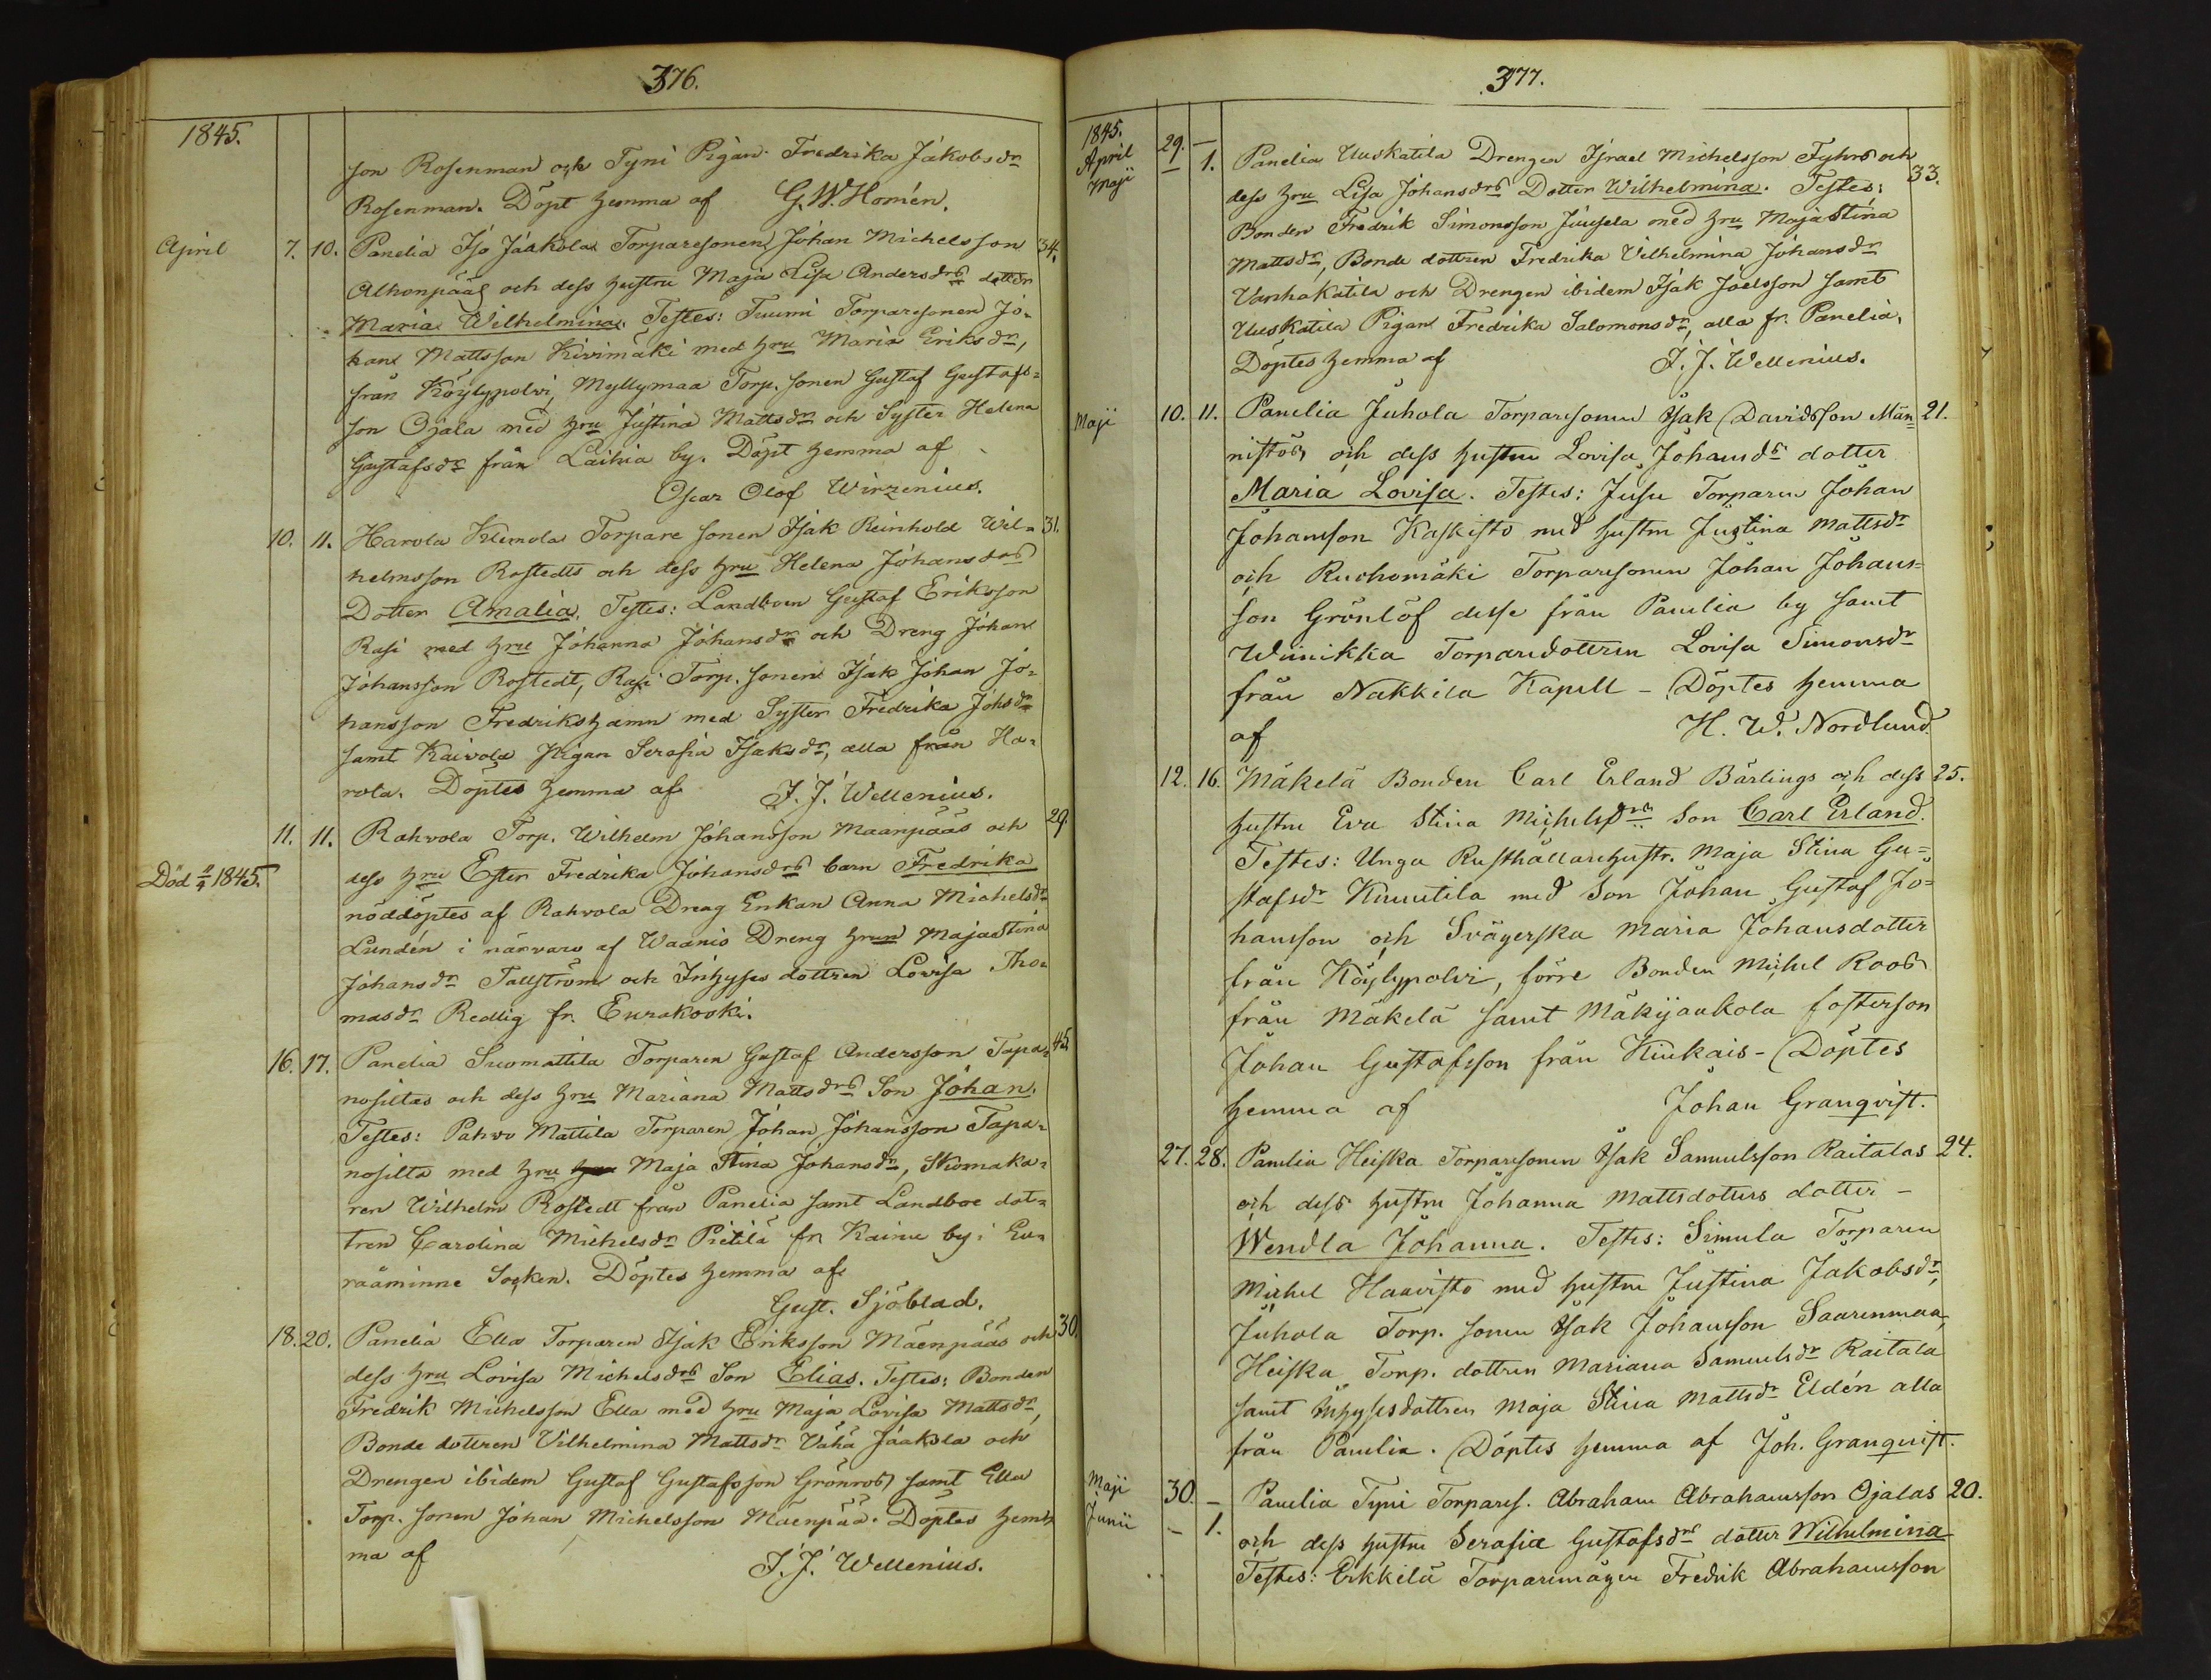 376.
1845.
son Rosenman och Tyni Pigan Fredrika Jakobsdr
Rosenman. Döpt hemma af G. W. Homén.
April 7. 10. Panelia Iso Jaakola Torparesonen Johan Michelsson 34.
Alhonpääs och dess hustru Maja Lisa Andersdrs dotter
Maria Wilhelmina. Testes: Tuumi Torparesonen Jo-
han Mattsson Kivimäki med hru Maria Eriksdr,
från Köylypolvi, Myllymaa Torp. sonen Gustaf Gustafs-
son Ojala med hru Justina Mattsdr och Syster Helena
Gustafsdr från Laihia by. Döpt hemma af
Oscar Olof Wirzenius.
10. 11. Harola Klemola Torpare sonen Isak Reinhold Wil- 31.
helmsson Rostedts och dess hru Helena Johansdrs
Dotter Amalia. Testes: Landboen Gustaf Eriksson
Rasi med hru Johanna Johansdr och Dreng Johan
Johansson Rostedt, Rasi Torp. sonen Isak Johan Jo-
hansson Fredrikshamn med Syster Fredrika Johsdr
samt Kaivola Pigan Serafia Isaksdr, alla från Ha-
rola. Döptes hemma af J. J. Wellenius.
11. 11. Rahvola Torp. Wilhelm Johansson Maanpääs och 29.
Död 1845.
dess hru Ester Fredrika Johansdrs barn Fredrika
nöddöptes af Rahvola Dreng Enkan Anna Michelsdr
Lundén i närvaro af Waanis Dreng hrun Maja Stina
Johansdr Tallström och Inhyses dottren Lovisa Tho-
masdr Redlig fr. Eurakoski.
16. 17. Panelia Suomattila Torparen Gustaf Andersson Tapa- 45.
nosiltas och dess hru Mariana Mattsdrs Son Johan.
Testes: Pahvo Mattila Torparen Johan Johansson Tapa-
nosilta med hru Maja Stina Johansdr, Skomaka-
ren Wilhelm Rostedt från Panelia samt Landboe dot-
tren Carolina Michelsdr Pietilä fr. Kainu by i Eu-
raåminne Socken. Döptes hemma af
Gust. Sjöblad.
18. 20. Panelia Ella Torparen Isak Eriksson Mäenpääs och 30.
dess hru Lovisa Michelsdrs Son Elias. Testes: Bonden
Fredrik Michelsson Ella med hru Maja Lovisa Mattsdr,
Bonde dottren Vilhelmina Mattsdr Vähä Jaakola och
Drengen ibidem Gustaf Gustafsson Grönroos samt Ella
Torp. sonen Johan Michelsson Mäenpää. Döptes hem-
ma af J. J. Wellenius.
377.
1845.
April 29. –
Maji – 1. Panelia Uuskatila Drengen Israel Michelsson Fyhrs och 33.
dess hru Lisa Johansdrs Dotter Wilhelmina. Testes:
Bonden Fredrik Simonsson Juusela med hru Maja Stina
Mattsdr, Bonde dottren Fredrika Vilhelmina Johansdr
Vanhakatila och Drengen ibidem Isak Joelsson samt
Uuskatila Pigan Fredrika Salomonsdr, alla fr. Panelia.
Döptes hemma af J. J. Wellenius.
Maji 10. 11. Panelia Juhola Torparesonen Isak Davidsson Män- 21.
nistös och dess hustru Lovisa Johansdrs dotter
Maria Lovisa. Testes: Juse Torparen Johan
Johansson Kaskisto med hustru Justina Mattsdr
och Ruohomäki Torparesonen Johan Johans-
son Grönlöf desse från Panelia by samt
Wiinikka Torparedottren Lovisa Simonsdr
från Nakkila Kapell – Döptes hemma
af H. W. Nordlund.
12. 16. Mäkelä Bonden Carl Erland Bärlings och dess 25.
hustru Eva Stina Michelsdrs Son Carl Erland.
Testes: Unga Rusthållarehustr. Maja Stina Gu-
stafsdr Kuuttila med Son Johan Gustaf Jo-
hansson och Svägerska Maria Johansdotter
från Köylypolvi, förre Bonden Michel Roos
från Mäkelä samt Mäkijaakola fosterson
Johan Gustafsson från Kiukais – Döptes
hemma af Johan Granqvist.
27. 28. Panelia Heiska Torparesonen Isak Samuelsson Raitalas 24.
och dess hustru Johanna Mattsdotters dotter –
Wendla Johanna. Testes: Simula Torparen
Michel Haavisto med hustru Justina Jakobsdr,
Juhola Torp. sonen Isak Johansson Saarenmaa,
Heiska Torp. dottren Mariana Samuelsdr Raitala
samt Inhysesdottren Maja Stina Mattsdr Eldén alla
från Panelia. Döptes hemma af Joh. Granqvist.
Maji 30. –
Junii – 1. Panelia Tyni Torpares. Abraham Abrahamsson Ojalas 20.
och dess hustru Serafia Gustafsdrs dotter Wilhelmina
Testes: Erkkilä Torparemågen Fredrik Abrahamsson